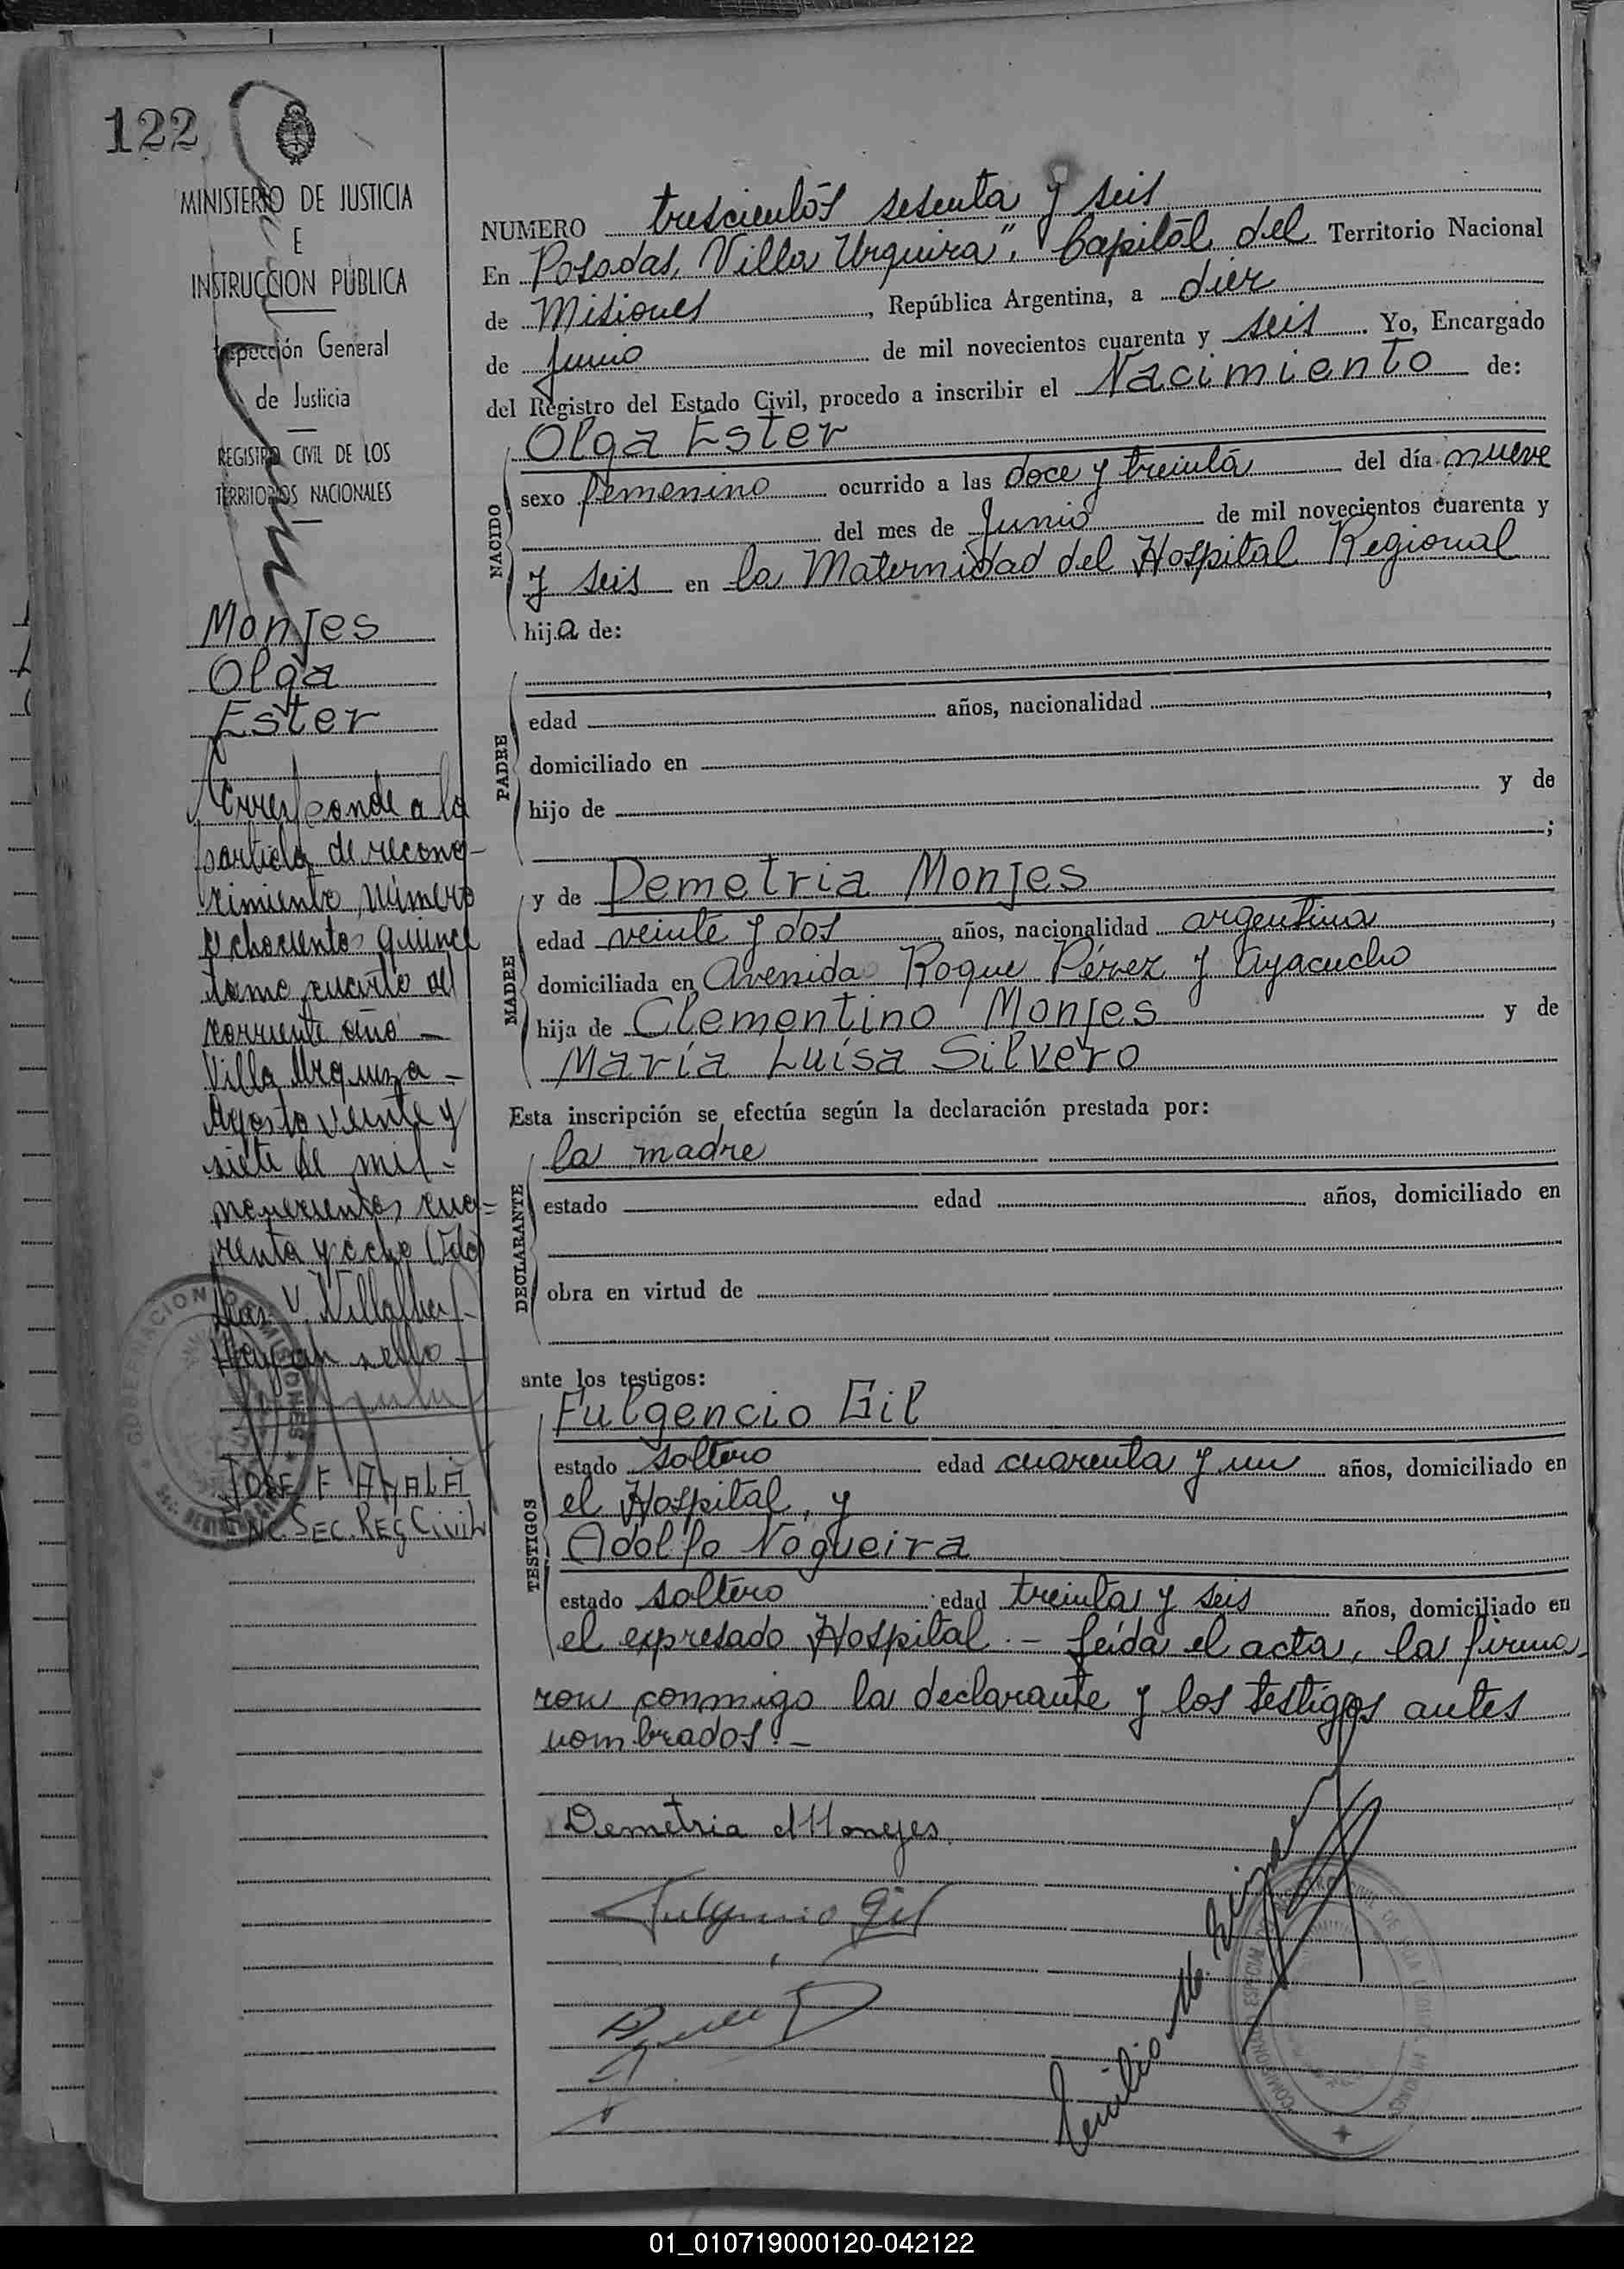 122
MINISTERIO DE JUSTICIA
E
INSTRUCCION PUBLICA
Inspección General
de Justicia
REGISTRO CIVIL DE LOS
TERRITORIOS NACIONALES
Monjes
Olga
Ester
Corresponde a la
partida de recono-
cimiento número
ochocientos quince
tomo cuarto del
corriente año —
Villa Urquiza —
Agosto veinte y
siete de mil
novecientos cua=
renta y ocho (Fdo)
V. Villalba
Hay un sello —
JOSE F AYALA
ENC. SEC. REG CIVIL
NUMERO trescientos sesenta y seis
En Posadas, Villa Urquiza", Capital del Territorio Nacional
de Misiones, República Argentina, a diez
de Junio de mil novecientos cuarenta y seis. Yo, Encargado
del Registro del Estado Civil, procedo a inscribir el Nacimiento de:
NACIDO
Olga Ester
sexo femenino ocurrido a las doce y treinta del día nueve
del mes de Junio de mil novecientos cuarenta y
y seis en la Maternidad del Hospital Regional
hija de:
PADRE
edad años, nacionalidad ,
domiciliado en
hijo de y de
;
MADRE
y de Demetria Monjes
edad veinte y dos años, nacionalidad argentina,
domiciliada en Avenida Roque Pérez y Ayacucho
hija de Clementino Monjes y de
María Luísa Silvero
Esta inscripción se efectúa según la declaración prestada por:
DECLARANTE
la madre
estado edad años, domiciliado en
obra en virtud de
ante los testigos:
TESTIGOS
Fulgencio Gil
estado soltero edad cuarenta y un años, domiciliado en
el Hospital, y
Adolfo Nogueira
estado soltero edad treinta y seis años, domiciliado en
el expresado Hospital. — Leída el acta, la firma-
ron conmigo la declarante y los testigos antes
nombrados. —
Demetria Monges
Fulgencio Gil
Emilio M.
01_010719000120-042122